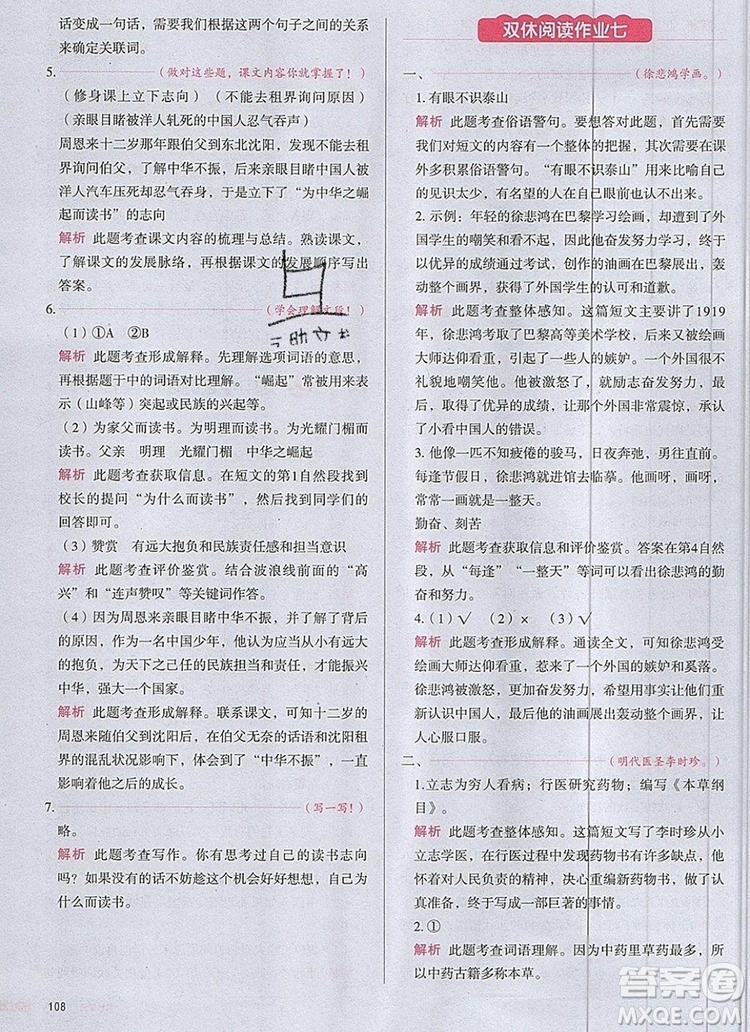 话变成一句话，我们根据这两个句子之间的关系
来确定关联词。
5.（做对这些题，课文内容你就掌握了！）
（修身课上立下志向）（不能去租界询问原因）
（亲眼目睹被洋人轧死的中国人忍气吞声）
周恩来十二岁那年跟伯父到东北沈阳，发现不能
去租界询问原因，当他亲眼目睹中国人被
洋人汽车压死却忍气吞声，于是立下了“为中华之崛
起而读书”的志向
解析 此题考查课文内容的梳理与总结。熟读课文，
了解课文的发展脉络，再根据课文的发展顺序写出
答案。
6.（学会理解文段！）
（1）①A ②B
解析 此题考查形成解释。先理解选项词语的意思，
再根据题于中的词语对比理解。“崛起”常被用来表
示（山峰等）突起或民族的兴起等。
（2）为家父而读书。为明理而读书。为光耀门楣而
读书。父亲 明理 光耀门楣 中华之崛起
解析 此题考查获取信息。在短文的第1自然段找到
校长的提问“为什么而读书”，然后根据不同学生的
回答即可。
（3）赞赏 有远大抱负和民族责任感和担当意识
解析 此题考查评价鉴赏。结合波浪线前面的“高
兴”和“连声赞叹”等关键词作答。
（4）因为周恩来亲眼目睹中华不振，了解了背后
的原因，作为中国少年，他认为自己应该有远大
的抱负、为中华之崛起的民族担当并努力学习振兴
中华，强大一个国家。
解析 此题考查形成解释。联系课文，十二岁的
周恩来，在伯父无奈的话和沈阳租界
的混乱景况影响下，体会到了“中华不振”，进而
影响了他之后的成长。
7.（写一写！）
略。
解析 此题考查写作。你有思考过自己的读书志向
吗？如果没有的话不妨趁这个机会好好想想，自己
为什么而读书。
108
双休阅读作业七
一、（徐悲鸿学画。）
1. 有眼不识泰山
解析 此题考查俗语警句。要想答对此题，首先要
对短文的内容有一个整体的把握，其次需要在课
外多积累俗语警句。“有眼不识泰山”用来比喻自己
的见识太少，有名望的人在眼前也认不出来。
2. 示例：年轻的徐悲鸿在巴黎学习绘画，却遭到了外
国学生的嘲笑和看不起，因此他奋发努力，终
以优异的成绩通过考试，创作的油画在巴黎画展上
引起轰动，得到了外国学生的认可和道歉。
解析 此题考查整体感知。这篇短文主要讲了1919
年，徐悲鸿考入了巴黎高等美术学校，他受到绘画
大师达仰看重，引起了一些人的嫉妒。一个外国人很不
礼貌地嘲笑他。他被激怒后，就励志奋发努力，最
后，取得了优异的成绩，让那个外国人非常震惊，承认
了小看中国人的错误。
3. 他像一匹不知疲倦的骏马，日夜奔弛，勇往直前。
每逢节假日，徐悲鸿就进馆去画画，画呀，画呀，
常常一画就是一整天。
勤奋、刻苦
解析 此题考查获取信息和评价鉴赏。答案在第4自然段
中，从“每逢”“一整天”等词可以看出徐悲鸿的勤
奋和努力。
4.（1）√ （2）× （3）√
解析 此题考查形成解释。通读全文，徐悲鸿受
绘画大师达仰看重，惹来了外国人的嫉妒和奚落。
徐悲鸿被激怒，更加努力学习，希望用实力使他们重
新认识中国人，最后他的画惊动了画界，让外国
人心服口服。
二、（明代医圣李时珍。）
1. 立志为穷人看病；行医研究药物；编写《本草纲
目》。
解析 此题考查整体感知。这篇短文写了李时珍从小
立志学医，行医过程中发现旧药物书有许多缺点，
他就抱着负责的精神，决定重新编写，做了很多
认真准备。最终于写成一部巨著的事情。
2. ①
解析 此题考查词语理解。因为中药里草药最多，所
以中药古籍多称本草。
答案圈
MXQE.COM